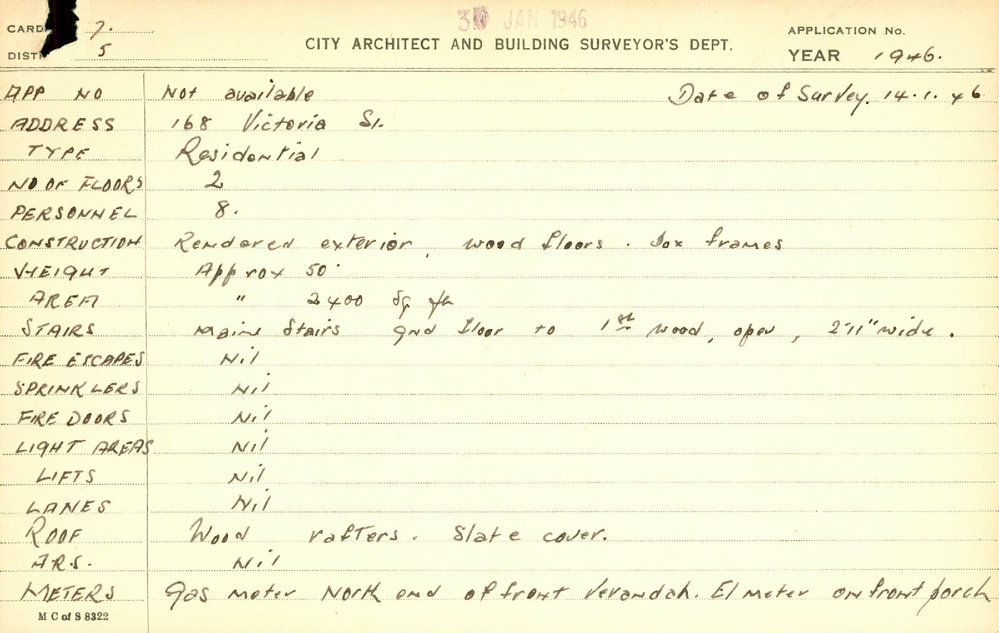 30 JAN 1946
CARD 7.
APPLICATION No.
DIST 5
CITY ARCHITECT AND BUILDING SURVEYOR'S DEPT.
YEAR 1946.
APP NO Not available Date of Survey. 14.1.46
ADDRESS 168 Victoria St.
TYPE Residential
NO OF FLOORS 2
PERSONNEL 8.
CONSTRUCTION Rendered exterior, wood floors. Box frames
HEIGHT Approx 50'
AREA " 2400 Sq ft
STAIRS Main Stairs Gnd floor to 1st wood, open, 2'11" wide.
FIRE ESCAPES Nil
SPRINKLERS Nil
FIRE DOORS Nil
LIGHT AREAS Nil
LIFTS Nil
LANES Nil
ROOF Wood rafters. Slate cover.
A.R.S. Nil
METERS Gas meter North end of front verandah. El meter on front porch
M C of S 8322